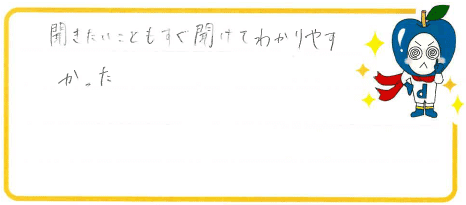 聞きたいこともすぐ聞けてわかりやす
かった
d